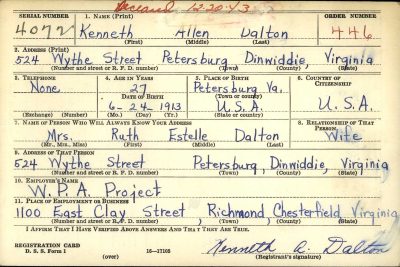 Deceased 12-20-43
SERIAL NUMBER 1. NAME (Print) ORDER NUMBER
4072 Kenneth Allen Dalton 446
(First) (Middle) (Last)
2. ADDRESS (Print)
524 Wythe Street Petersburg Dinwiddie, Virginia
(Number and street or R. F. D. number) (Town) (County) (State)
3. TELEPHONE 4. AGE IN YEARS 5. PLACE OF BIRTH 6. COUNTRY OF CITIZENSHIP
None 27 Petersburg Va.
DATE OF BIRTH (Town or county)
6-24-1913 U.S.A. U.S.A.
(Exchange) (Number) (Mo.) (Day) (Yr.) (State or country)
7. NAME OF PERSON WHO WILL ALWAYS KNOW YOUR ADDRESS 8. RELATIONSHIP OF THAT PERSON
Mrs. Ruth Estelle Dalton Wife
(Mr., Mrs., Miss) (First) (Middle) (Last)
9. ADDRESS OF THAT PERSON
524 Wythe Street Petersburg, Dinwiddie, Virginia
(Number and street or R. F. D. number) (Town) (County) (State)
10. EMPLOYER'S NAME
W.P.A. Project
11. PLACE OF EMPLOYMENT OR BUSINESS
1100 East Clay Street Richmond Chesterfield Virginia
(Number and street or R. F. D. number) (Town) (County) (State)
I AFFIRM THAT I HAVE VERIFIED ABOVE ANSWERS AND THAT THEY ARE TRUE.
REGISTRATION CARD
D. S. S. Form 1 16-17105 Kenneth A. Dalton
(over) (Registrant's signature)